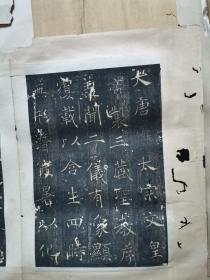 大唐 太宗文皇
帝製三藏聖教序
蓋聞二儀有象顯
覆載以含生四時
無形潛寒暑以化